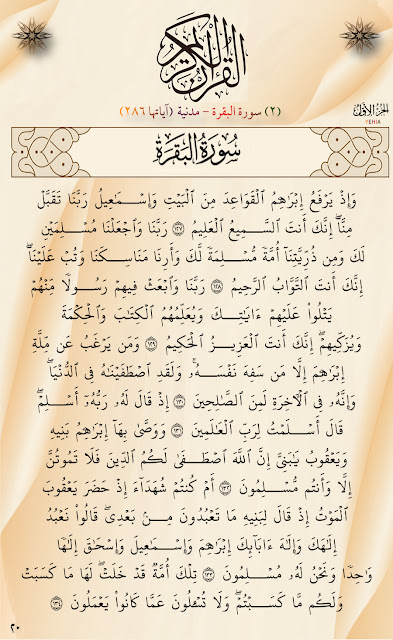 القرآن الكريم
(٢) سورة البقرة - مدنية (آياتها ٢٨٦)
الجزء الأول
YEHIA
سُورَةُ البَقَرَةِ
وَإِذْ يَرْفَعُ إِبْرَٰهِۦمُ ٱلْقَوَاعِدَ مِنَ ٱلْبَيْتِ وَإِسْمَٰعِيلُ رَبَّنَا تَقَبَّلْ
مِنَّآ ۖ إِنَّكَ أَنتَ ٱلسَّمِيعُ ٱلْعَلِيمُ ١٢٧ رَبَّنَا وَٱجْعَلْنَا مُسْلِمَيْنِ
لَكَ وَمِن ذُرِّيَّتِنَآ أُمَّةً مُّسْلِمَةً لَّكَ وَأَرِنَا مَنَاسِكَنَا وَتُبْ عَلَيْنَآ ۖ
إِنَّكَ أَنتَ ٱلتَّوَّابُ ٱلرَّحِيمُ ١٢٨ رَبَّنَا وَٱبْعَثْ فِيهِمْ رَسُولًا مِّنْهُمْ
يَتْلُوا۟ عَلَيْهِمْ ءَايَٰتِكَ وَيُعَلِّمُهُمُ ٱلْكِتَٰبَ وَٱلْحِكْمَةَ
وَيُزَكِّيهِمْ ۚ إِنَّكَ أَنتَ ٱلْعَزِيزُ ٱلْحَكِيمُ ١٢٩ وَمَن يَرْغَبُ عَن مِّلَّةِ
إِبْرَٰهِۦمَ إِلَّا مَن سَفِهَ نَفْسَهُۥ ۚ وَلَقَدِ ٱصْطَفَيْنَٰهُ فِى ٱلدُّنْيَا ۖ
وَإِنَّهُۥ فِى ٱلْءَاخِرَةِ لَمِنَ ٱلصَّٰلِحِينَ ١٣٠ إِذْ قَالَ لَهُۥ رَبُّهُۥٓ أَسْلِمْ ۖ
قَالَ أَسْلَمْتُ لِرَبِّ ٱلْعَٰلَمِينَ ١٣١ وَوَصَّىٰ بِهَآ إِبْرَٰهِۦمُ بَنِيهِ
وَيَعْقُوبُ يَٰبَنِىَّ إِنَّ ٱللَّهَ ٱصْطَفَىٰ لَكُمُ ٱلدِّينَ فَلَا تَمُوتُنَّ
إِلَّا وَأَنتُم مُّسْلِمُونَ ١٣٢ أَمْ كُنتُمْ شُهَدَآءَ إِذْ حَضَرَ يَعْقُوبَ
ٱلْمَوْتُ إِذْ قَالَ لِبَنِيهِ مَا تَعْبُدُونَ مِنۢ بَعْدِى ۖ قَالُوا۟ نَعْبُدُ
إِلَٰهَكَ وَإِلَٰهَ ءَابَآئِكَ إِبْرَٰهِۦمَ وَإِسْمَٰعِيلَ وَإِسْحَٰقَ إِلَٰهًا
وَٰحِدًا وَنَحْنُ لَهُۥ مُسْلِمُونَ ١٣٣ تِلْكَ أُمَّةٌ قَدْ خَلَتْ ۖ لَهَا مَا كَسَبَتْ
وَلَكُم مَّا كَسَبْتُمْ ۖ وَلَا تُسْـَٔلُونَ عَمَّا كَانُوا۟ يَعْمَلُونَ ١٣٤
٢٠